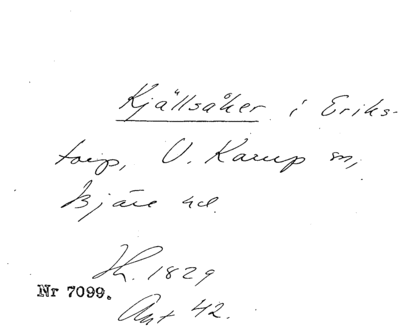 Kjällsåker i Eriks-
torp, V. Karup sn,
Bjäre hd.
Jh. 1829
Nr 7099.
Akt 42.